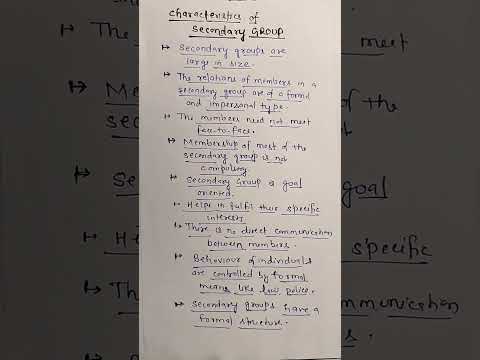 Characteristics of
Secondary GROUP
Secondary groups are
large in size.
The relations of members in a
secondary group are of a formal
and impersonal type.
The members need not meet
face-to-face.
Membership of most of the
secondary group is not
compulsory.
Secondary Group is goal
oriented.
Helps in fulfil their specific
interests
There is no direct communication
between members.
Behaviour of individuals
are controlled by formal
means like law, police.
Secondary groups have a
formal structure.